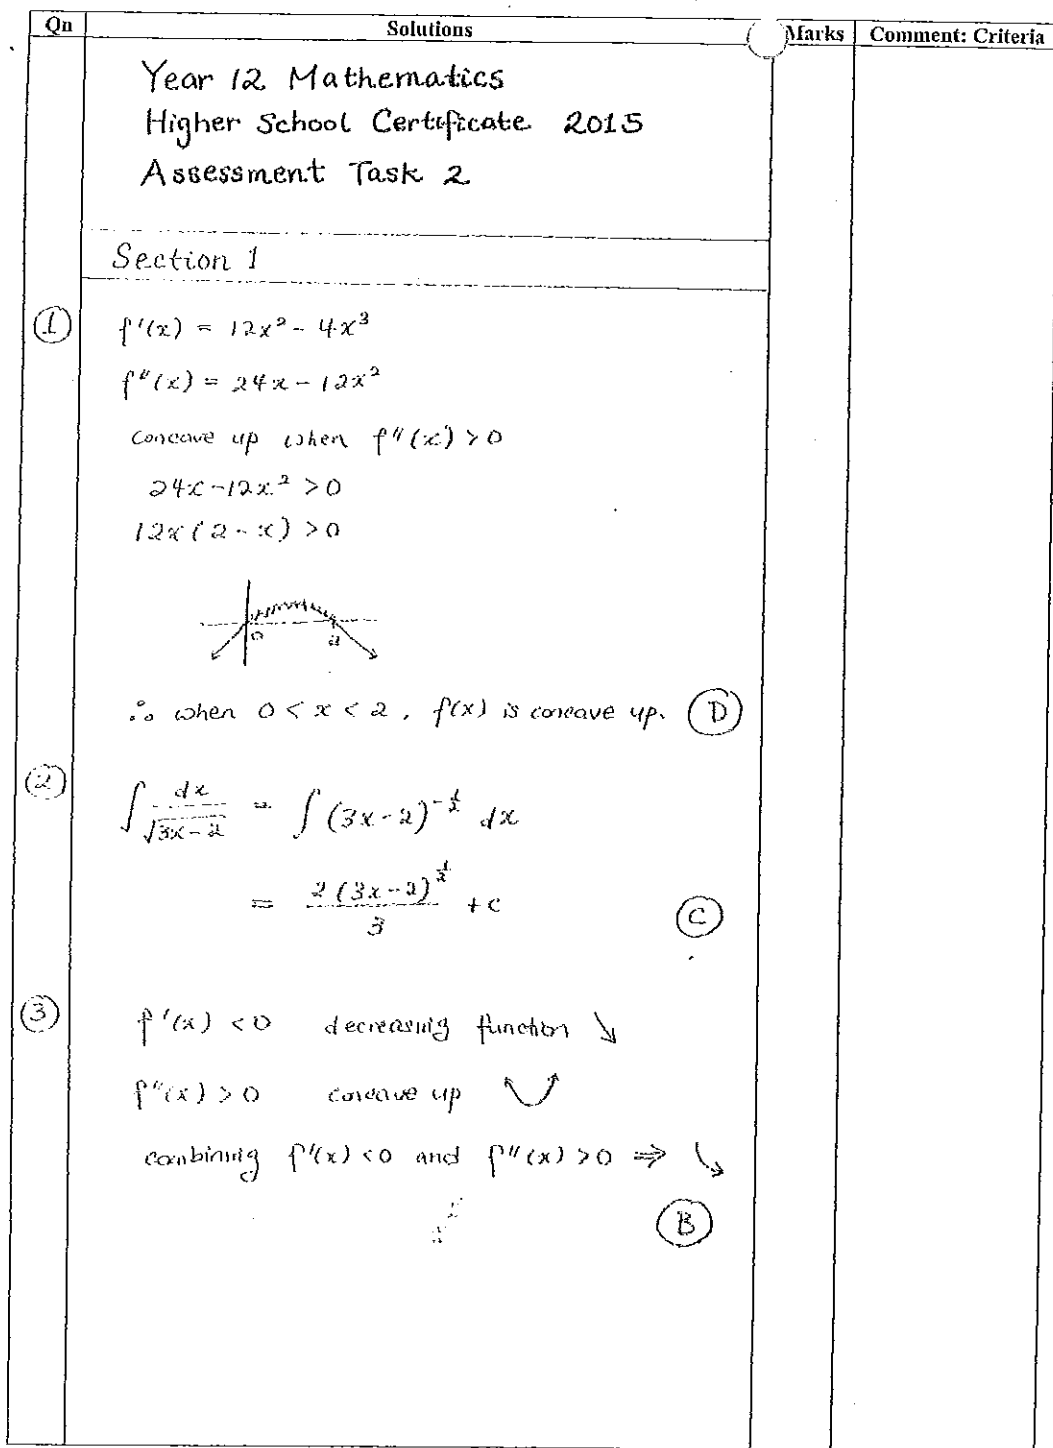 Qn Solutions Marks Comment: Criteria
Year 12 Mathematics
Higher School Certificate 2015
Assessment Task 2
Section 1
① f'(x) = 12x² - 4x³
f"(x) = 24x - 12x²
concave up when f"(x) > 0
24x - 12x² > 0
12x(2 - x) > 0
0 2
∴ when 0 < x < 2, f(x) is concave up. Ⓓ
② ∫ dx/√(3x-2) = ∫ (3x-2)^(-1/2) dx
= 2(3x-2)^(1/2) / 3 + c Ⓒ
③ f'(x) < 0 decreasing function ↘
f"(x) > 0 concave up
combining f'(x) < 0 and f"(x) > 0 ⇒
Ⓑ